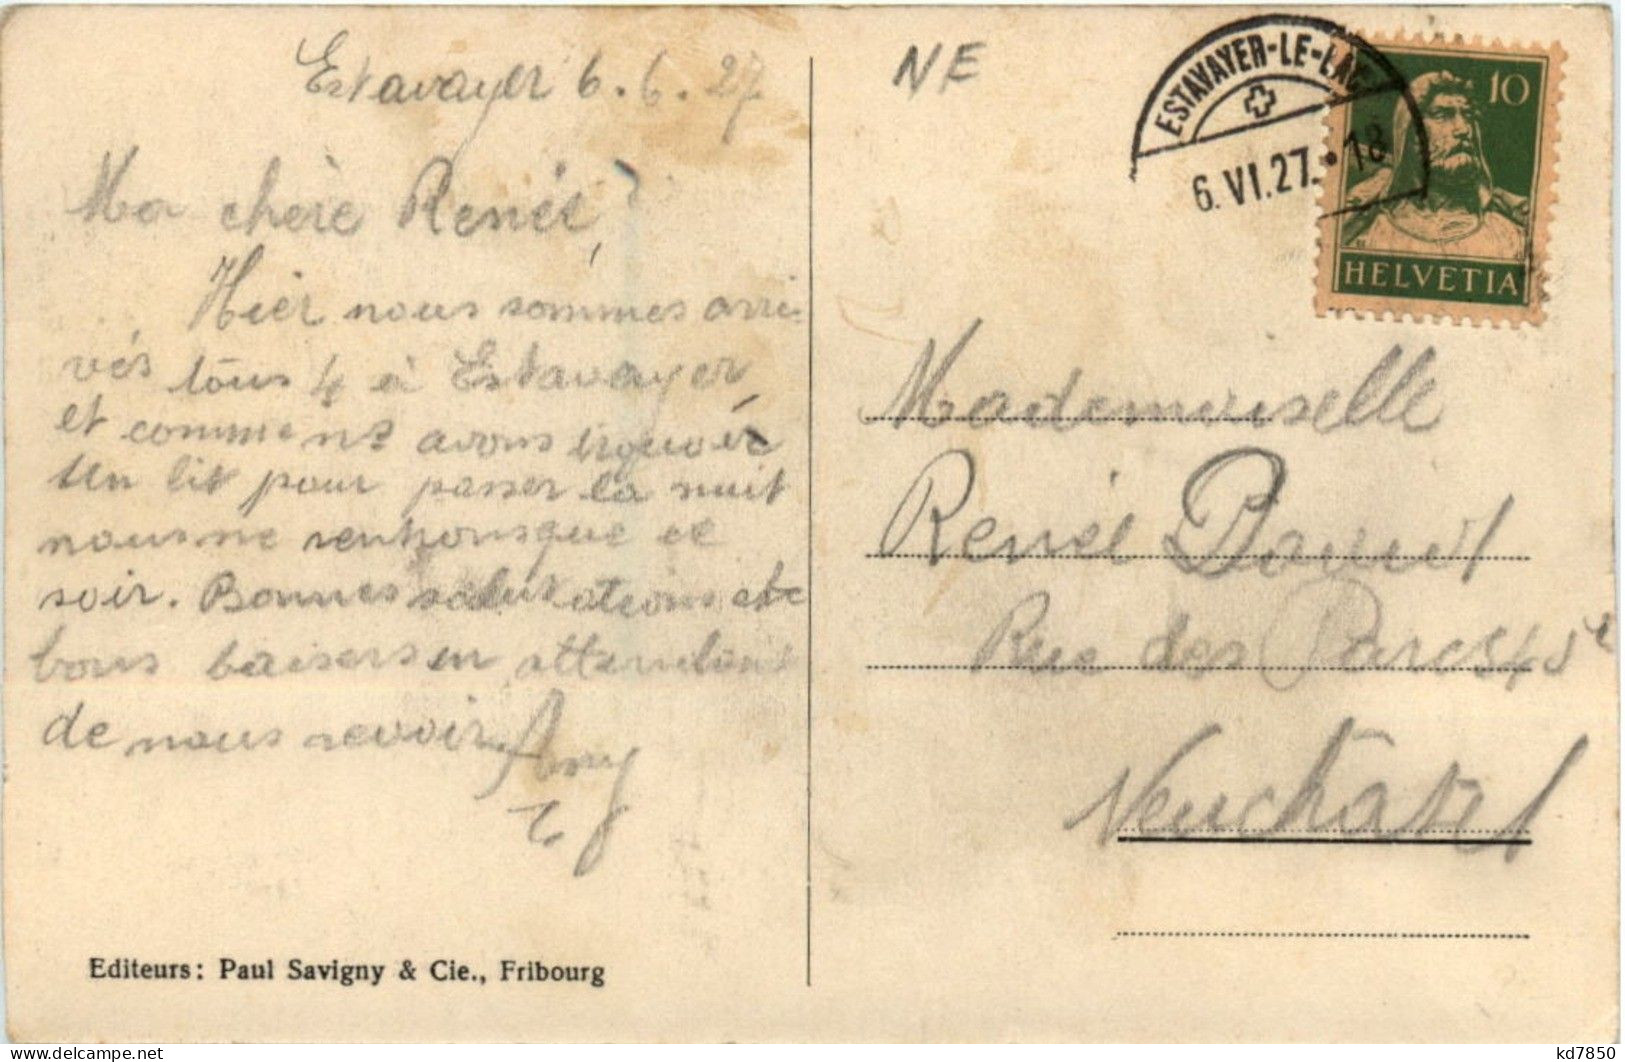 Estavayer 6.6.27
Ma chère Renée,
Hier nous sommes arri-
vés tous 4 à Estavayer,
et comme ns avons trouvé
un lit pour passer la nuit
nous ne rentrons que ce
soir. Bonnes salutations et
bons baisers en attendant
de nous revoir.
Editeurs: Paul Savigny & Cie., Fribourg
NE
ESTAVAYER-LE-LAC
6.VI.27.•18
10
HELVETIA
Mademoiselle
Renée
Rue des Parcs
Neuchâtel
kd7850